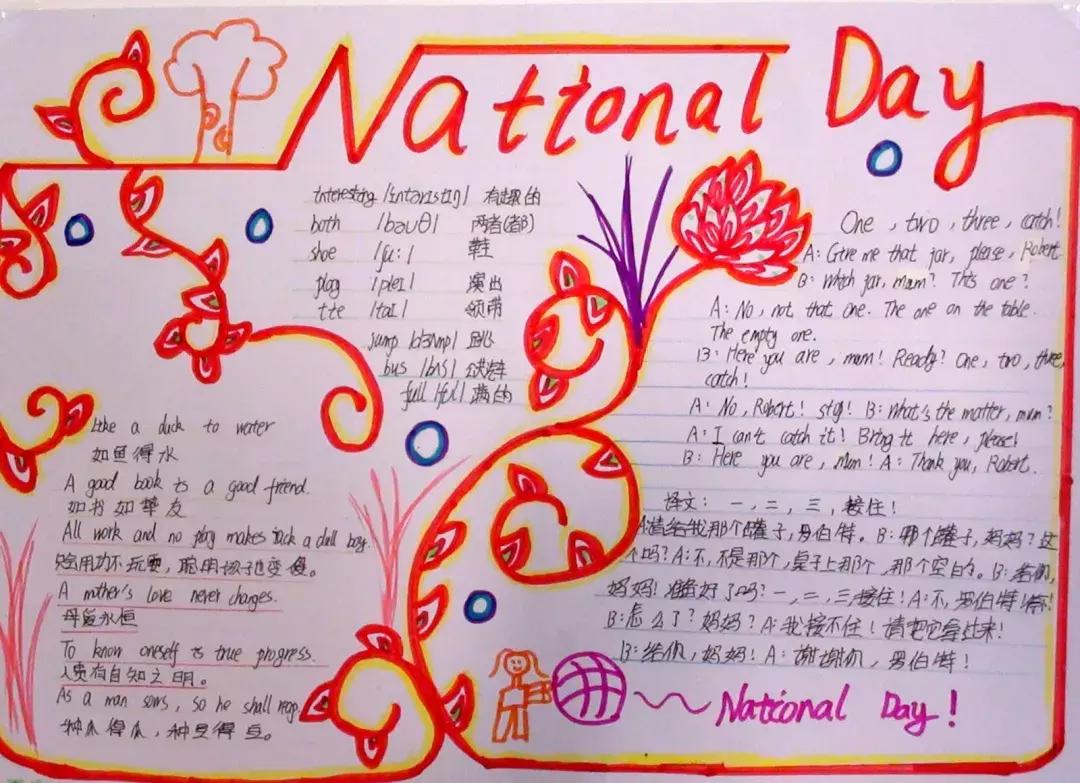 National Day
interesting /ɪntərɪstɪŋ/ 有趣的
both /bəuθ/ 两者(都)
shoe /ʃu:/ 鞋
play /pleɪ/ 演出
tie /taɪ/ 领带
jump /dʒʌmp/ 跳
bus /bʌs/
full /ful/ 满的
Like a duck to water
如鱼得水
A good book is a good friend.
如书如挚友
All work and no play makes jack a dull boy.
只会用功不玩耍,聪明孩子也变傻。
A mother's love never changes.
母爱永恒
To know oneself is true progress.
人贵有自知之明。
As a man sows, so he shall reap.
种瓜得瓜,种豆得豆。
One, two, three, catch!
A: Give me that jar, please, Robert
B: Which jar, mum? This one?
A: No, not that one. The one on the table.
The empty one.
B: Here you are, mum! Ready? One, two, three,
catch!
A: No, Robert! stop! B: What's the matter, mum?
A: I can't catch it! Bring it here, please!
B: Here you are, Mum! A: Thank you, Robert.
译文: 一,二,三,接住!
A:请给我那个罐子,罗伯特。B:哪个罐子,妈妈?这
个吗?A:不,不是那个,桌子上那个,那个空的。B:给你,
妈妈!准备好了吗?一,二,三,接住!A:不,罗伯特!
B:怎么了?妈妈?A:我接不住!请把它拿过来!
B:给你,妈妈!A:谢谢你,罗伯特!
National Day!